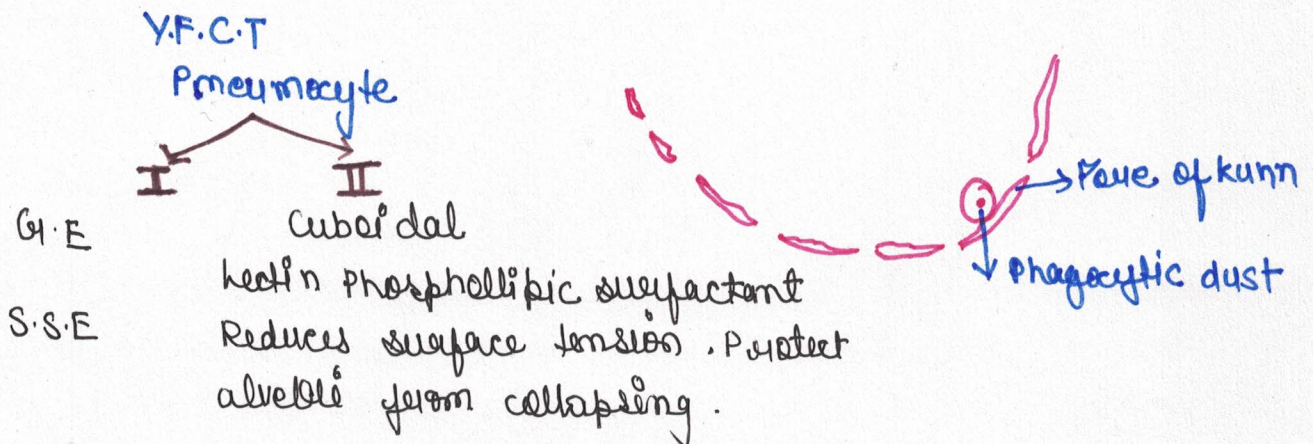 Y.F.C.T
Pneumocyte
I II
G.E Cuboidal
Lectin Phosphollipic surfactant
S.S.E Reduces surface tension. Protect
alveoli from collapsing.
Pore of kunn
Phagocytic dust